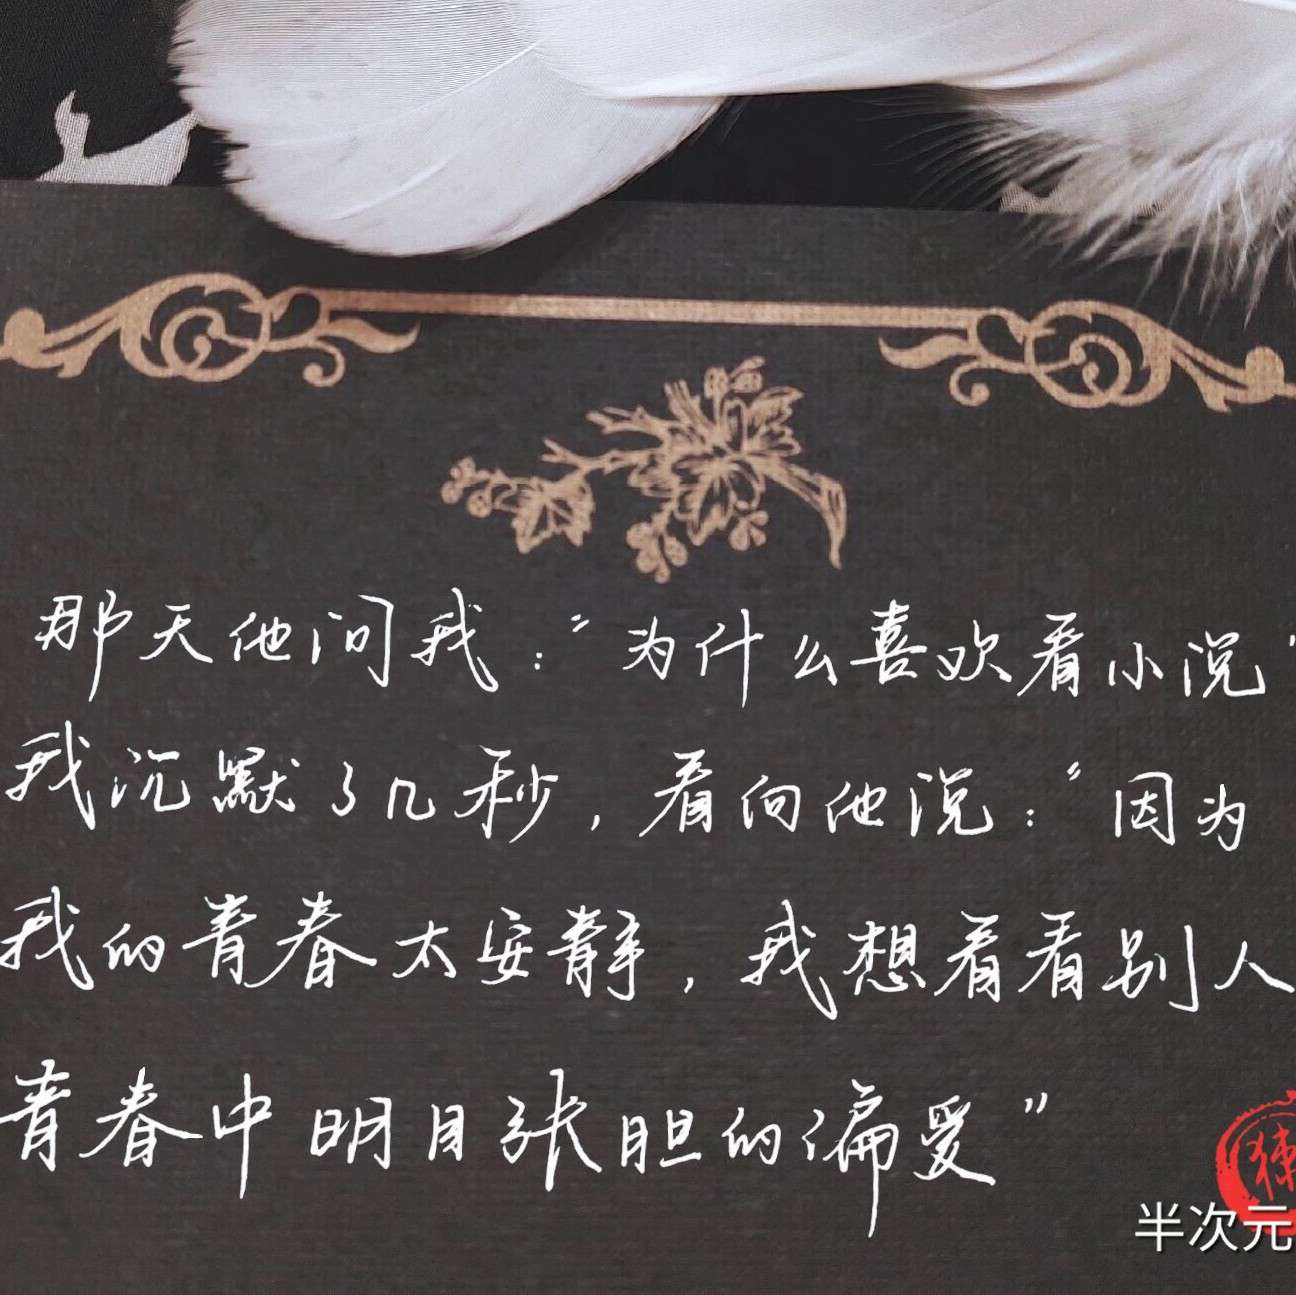 那天他问我：“为什么喜欢看小说”
我沉默了几秒，看向他说：“因为
我的青春太安静，我想看看别人
青春中明目张胆的偏爱”
半次元